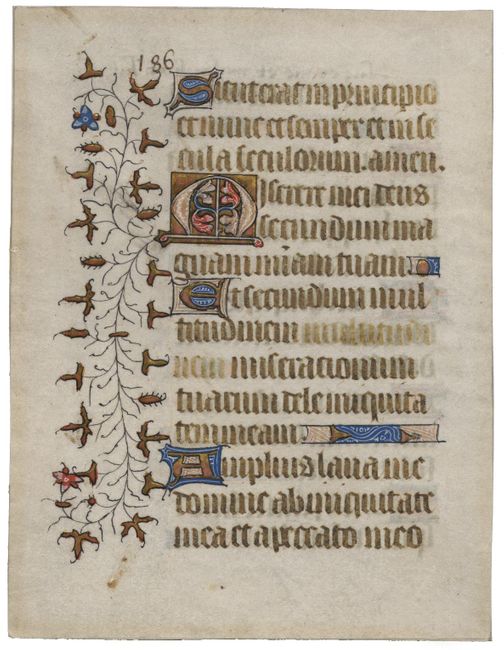 186
Sicut erat in principio
et nunc et semper et in se
cula seculorum. amen.
Miserere mei deus
secundum ma
gnam miam tuam
Et secundum mul
titudinem multitudi
nem miserationum
tuarum dele iniquita
tem meam
Amplius laua me
domine ab iniquitate
mea et a peccato meo